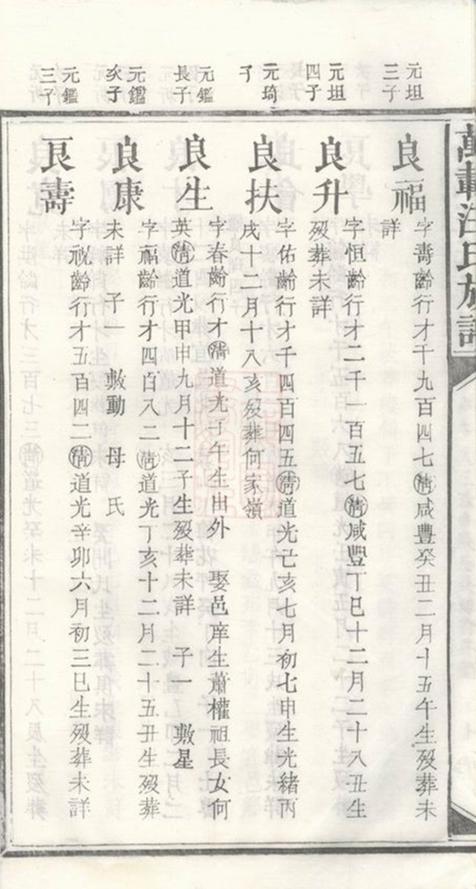 萬載汪氏族譜
元坦三子
良福
字壽齡行才千九百四七清咸豐癸丑二月十五午生歿葬未
詳
元坦四子
良升
字恒齡行才二千一百五七清咸豐丁巳十二月二十八丑生
歿葬未詳
元琦子
良扶
字佑齡行才千四百四五清道光己亥七月初七申生光緒丙
戌十二月十八亥歿葬何家嶺
元鑑長子
良生
字春齡行才清道光壬午生出外 娶邑庠生蕭權祖長女何
英清道光甲申九月十二子生歿葬未詳 子一 敷星
元鑑次子
良康
字福齡行才四百八二清道光丁亥十二月二十五丑生歿葬
未詳 子一 敷動 母氏
元鑑三子
良壽
字祝齡行才五百四二清道光辛卯六月初三巳生歿葬未詳